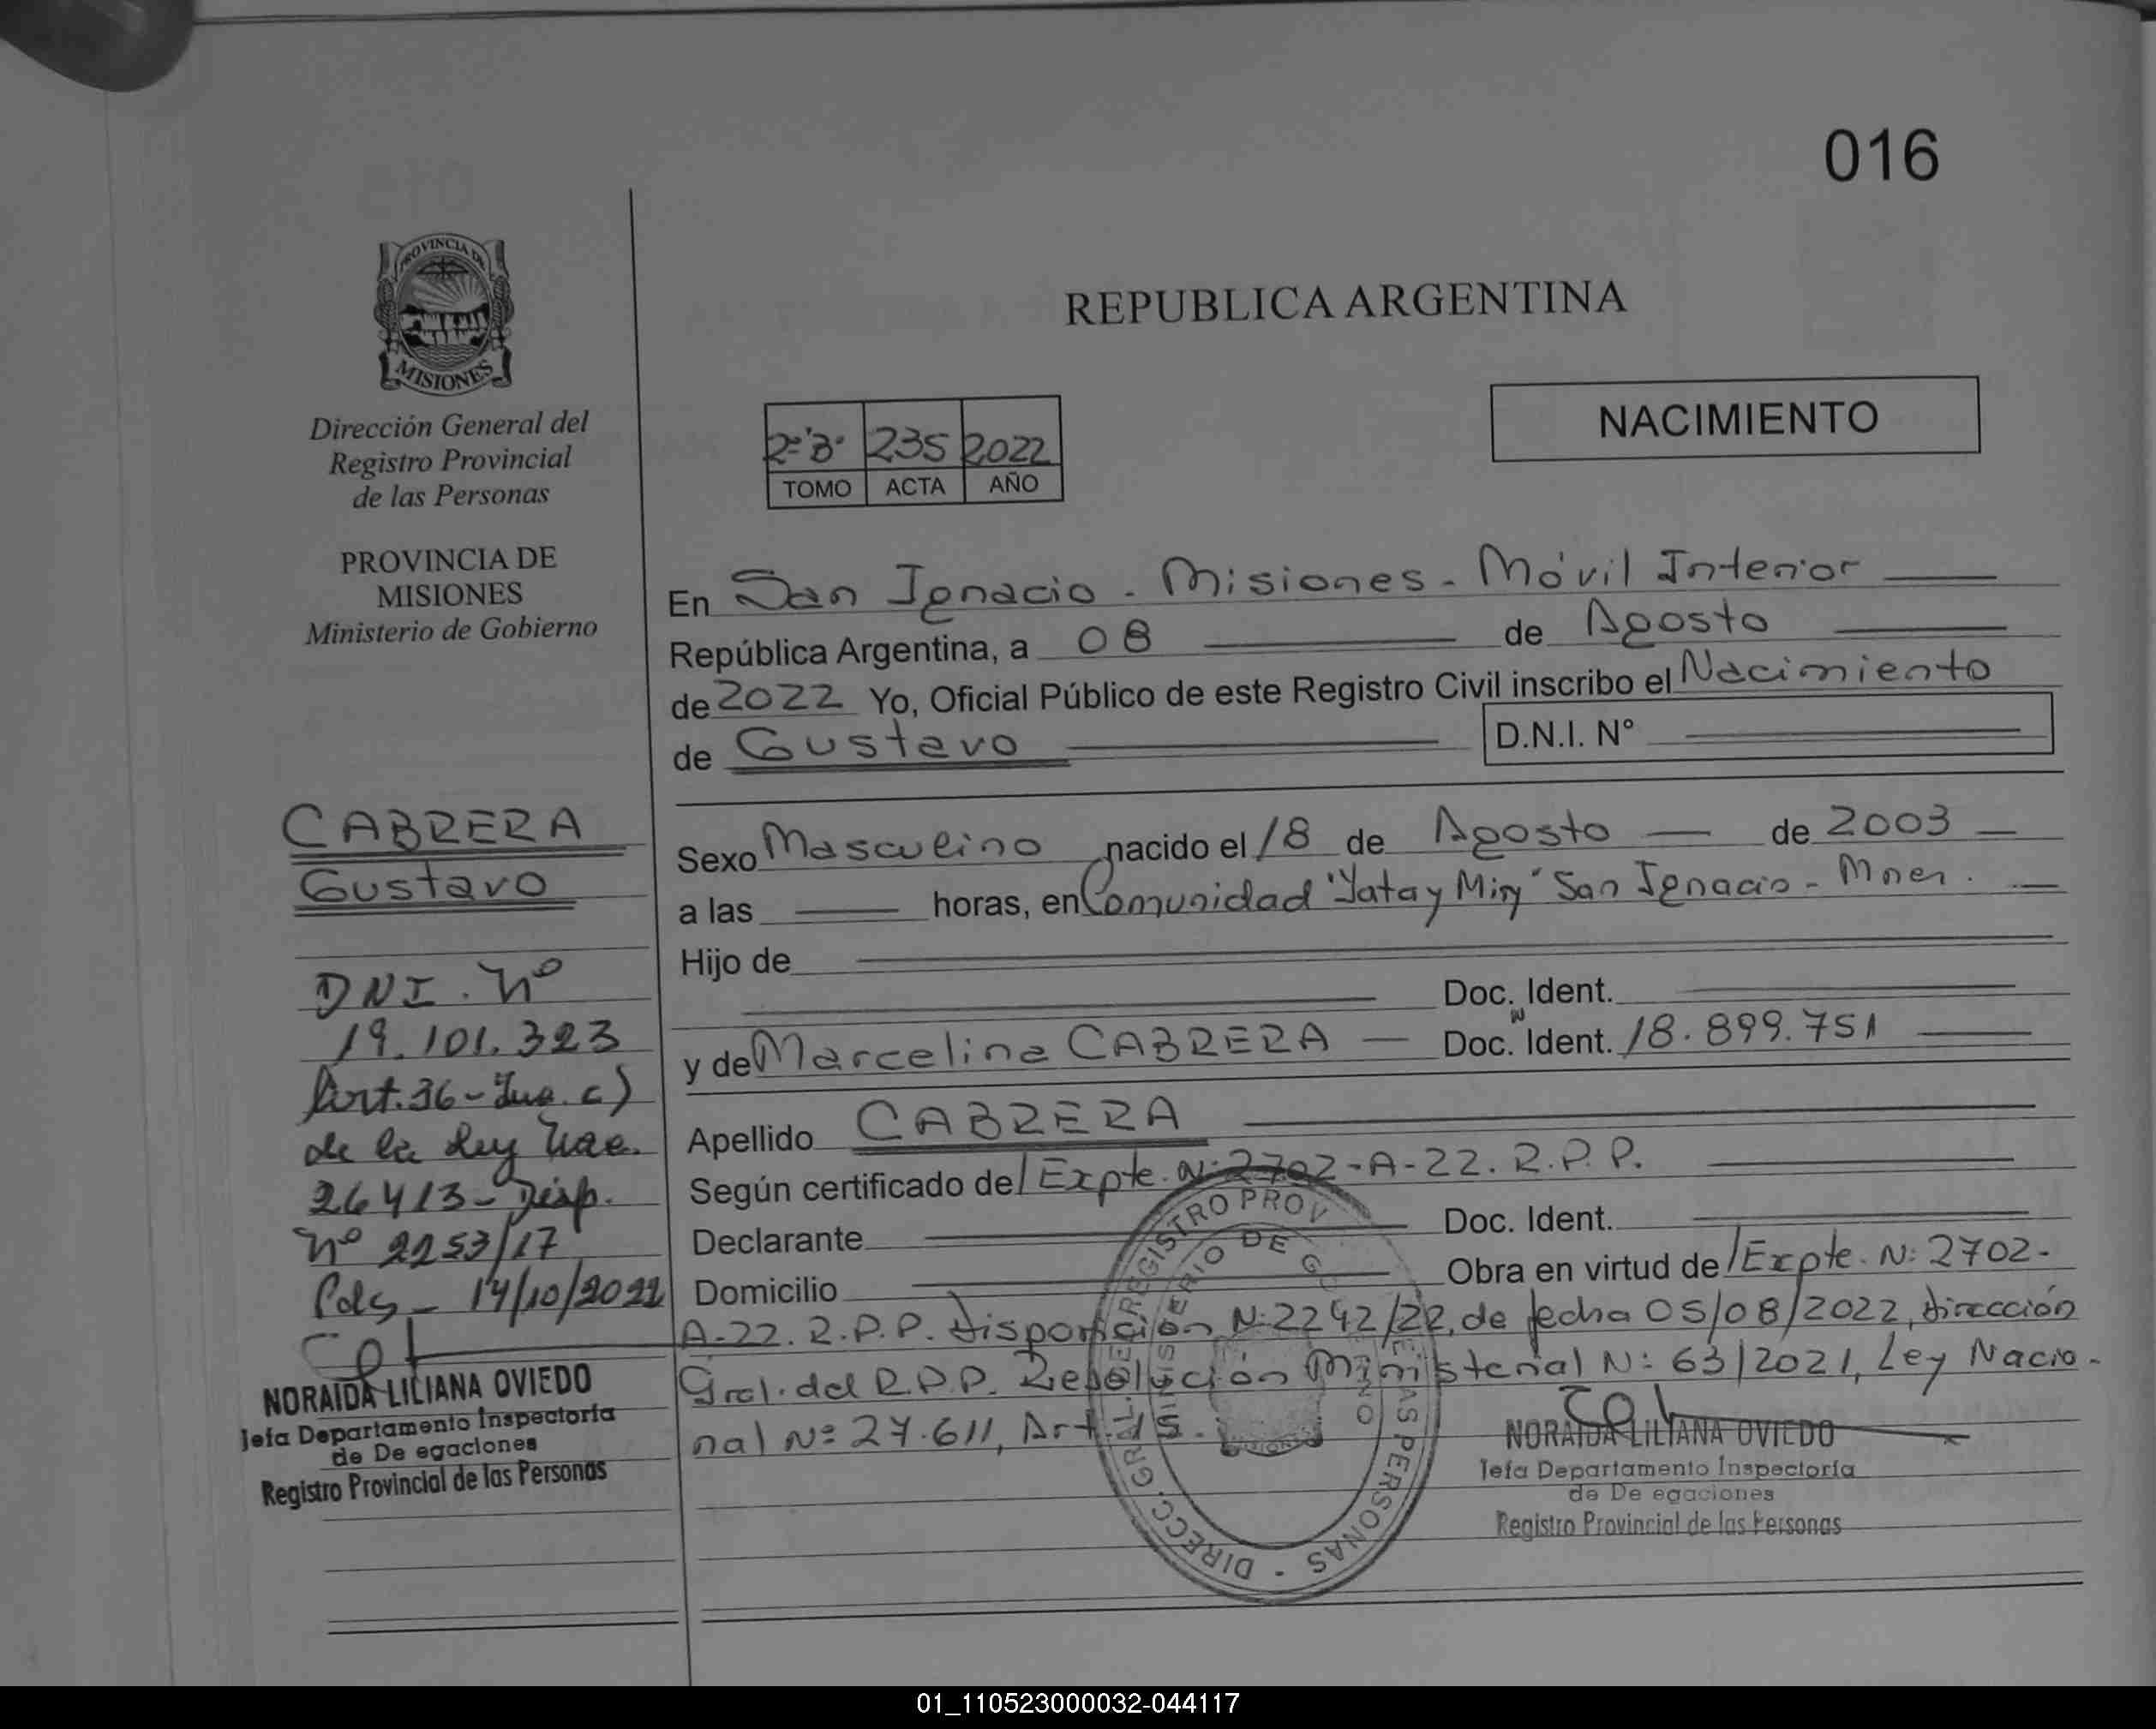 016
PROVINCIA DE
MISIONES
Dirección General del
Registro Provincial
de las Personas
PROVINCIA DE
MISIONES
Ministerio de Gobierno
CABRERA
Gustavo
DNI. Nº
19.101.323
Art. 36 - Inc. c)
de la Ley Nac.
26413 - Disp.
Nº 2253/17
Pdas - 14/10/2022
NORAIDA LILIANA OVIEDO
Jefa Departamento Inspectoría
de De egaciones
Registro Provincial de las Personas
REPUBLICA ARGENTINA
NACIMIENTO
2º"B" 235 2022
TOMO ACTA AÑO
En San Ignacio - Misiones - Móvil Interior
República Argentina, a 08 de Agosto
de 2022 Yo, Oficial Público de este Registro Civil inscribo el Nacimiento
de Gustavo D.N.I. Nº
Sexo Masculino nacido el 18 de Agosto de 2003
a las horas, en Comunidad "Yatay Miry" San Ignacio - Mnes.
Hijo de
Doc. Ident.
y de Marcelina CABRERA Doc. Ident. 18.899.751
Apellido CABRERA
Según certificado de Expte. Nº 2702-A-22. R.P.P.
Declarante Doc. Ident.
Domicilio Obra en virtud de Expte. Nº 2702-
A-22. R.P.P. Disposición Nº 2242/22, de fecha 05/08/2022, Dirección
Gral. del R.P.P. Resolución Ministerial Nº 63/2021, Ley Nacio-
nal Nº 27.611, Art. 15.
DIRECC. GRAL. REGISTRO PROV PERSONAS
NORAIDA LILIANA OVIEDO
Jefa Departamento Inspectoría
de De egaciones
Registro Provincial de las Personas
01_110523000032-044117